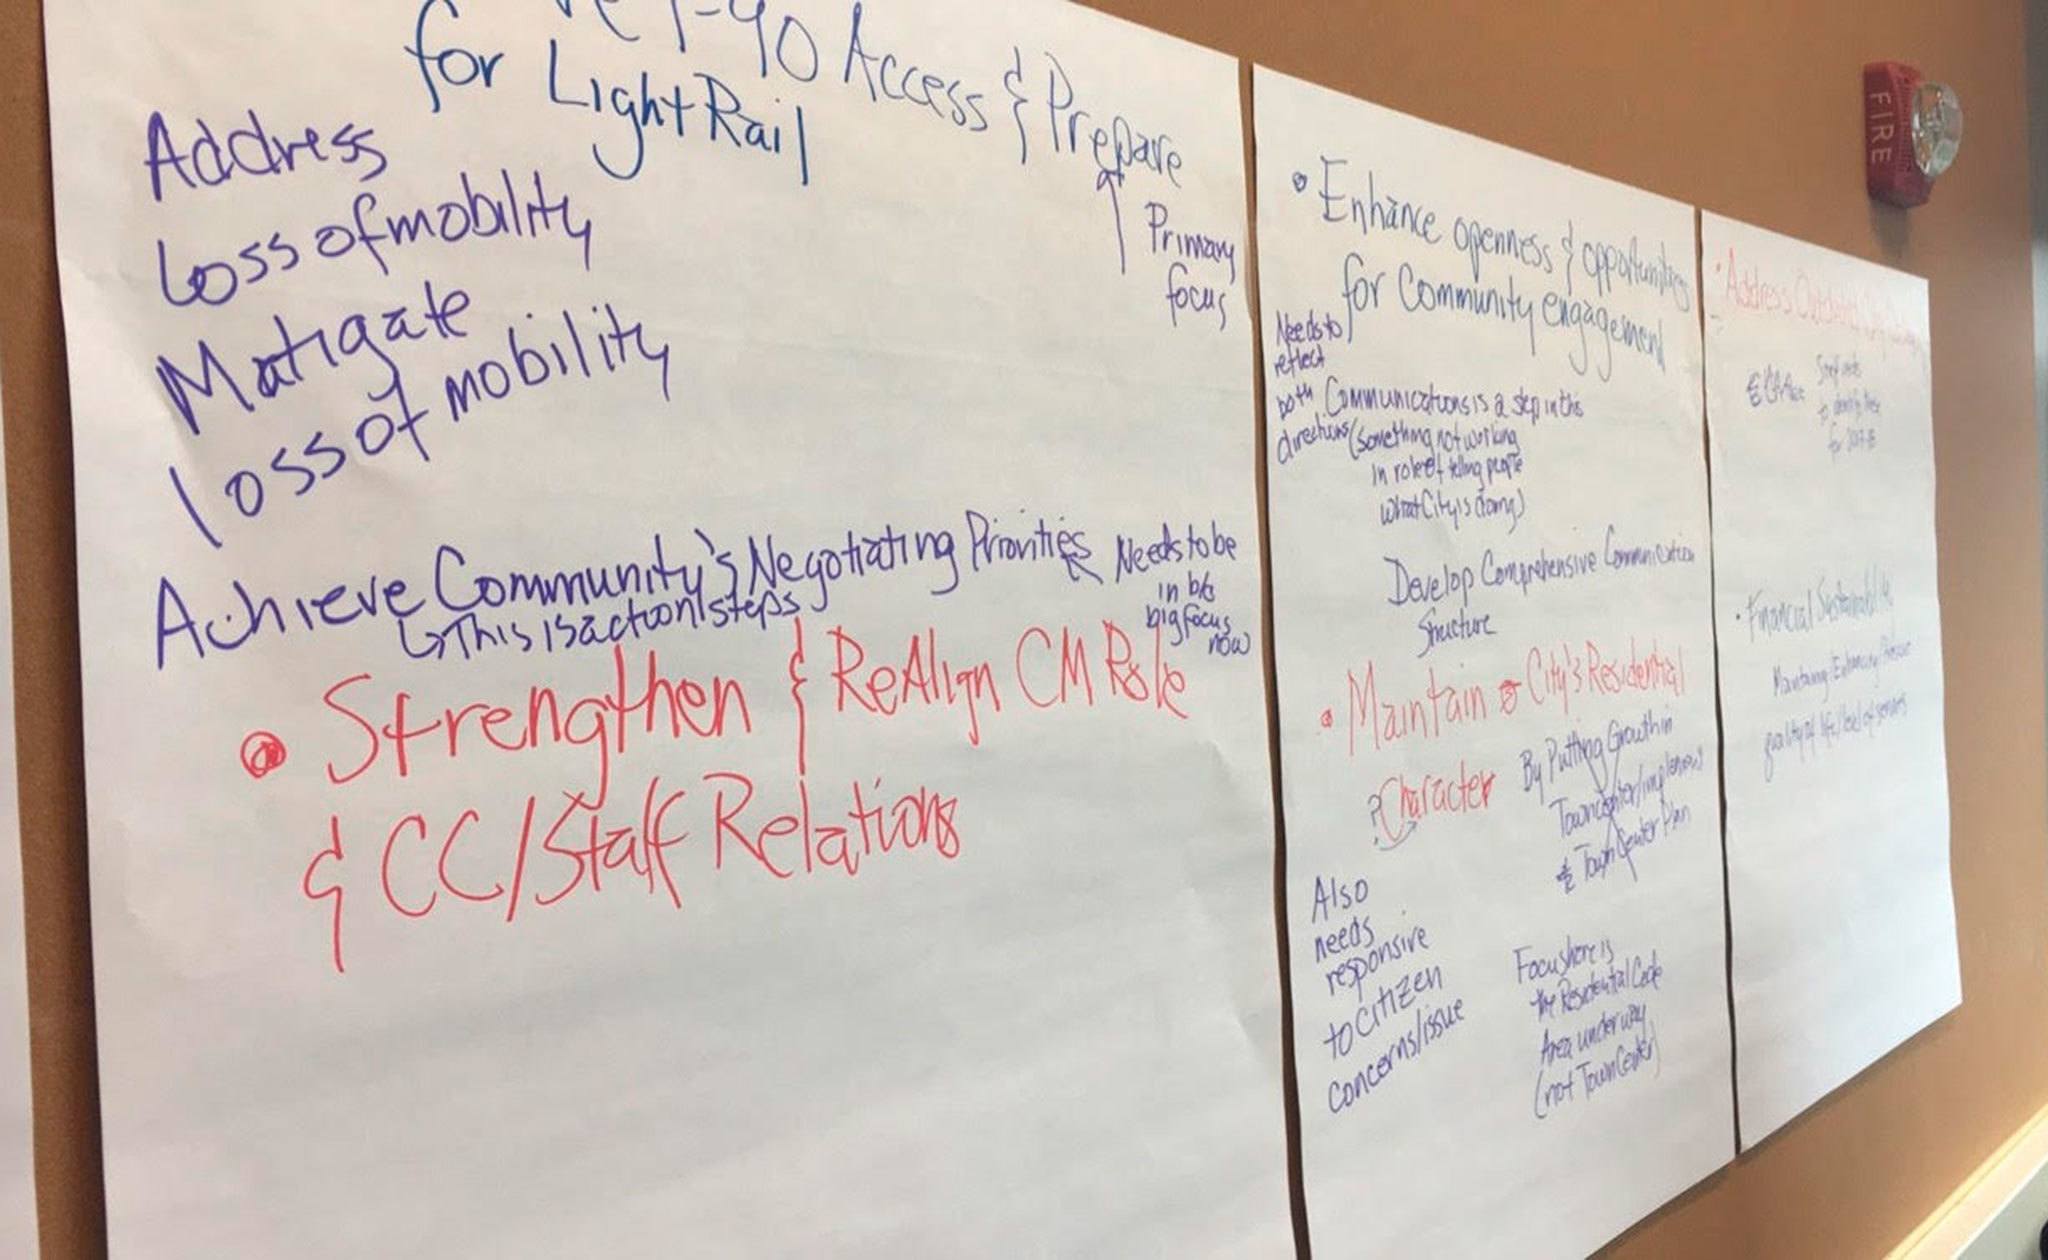 I-90 Access & Prepare
for Light Rail
Primary
focus
Address
Loss of mobility
Matigate
loss of mobility
Achieve Community's Negotiating Priorities
↳ This is action/steps
Needs to be
in b/c
big focus
now
• Strengthen & ReAlign CM Role
& CC/Staff Relations
• Enhance openness & opportunities
for Community engagement
Needs to
reflect
both
directions
Communications is a step in this
(something not working
in role of telling people
what City is doing)
Develop Comprehensive Communication
Structure
• Maintain City's Residential
? Character
By Putting Growth in
Towncenter/implement
Town Center Plan
Also
needs
responsive
to citizen
concerns/issue
Focus here is
the Residential Code
Area underway
(not Town Center)
• Address
to identify these
for
• Financial Sustainability
Maintaining/Enhancing/
quality of life/level of services
FIRE